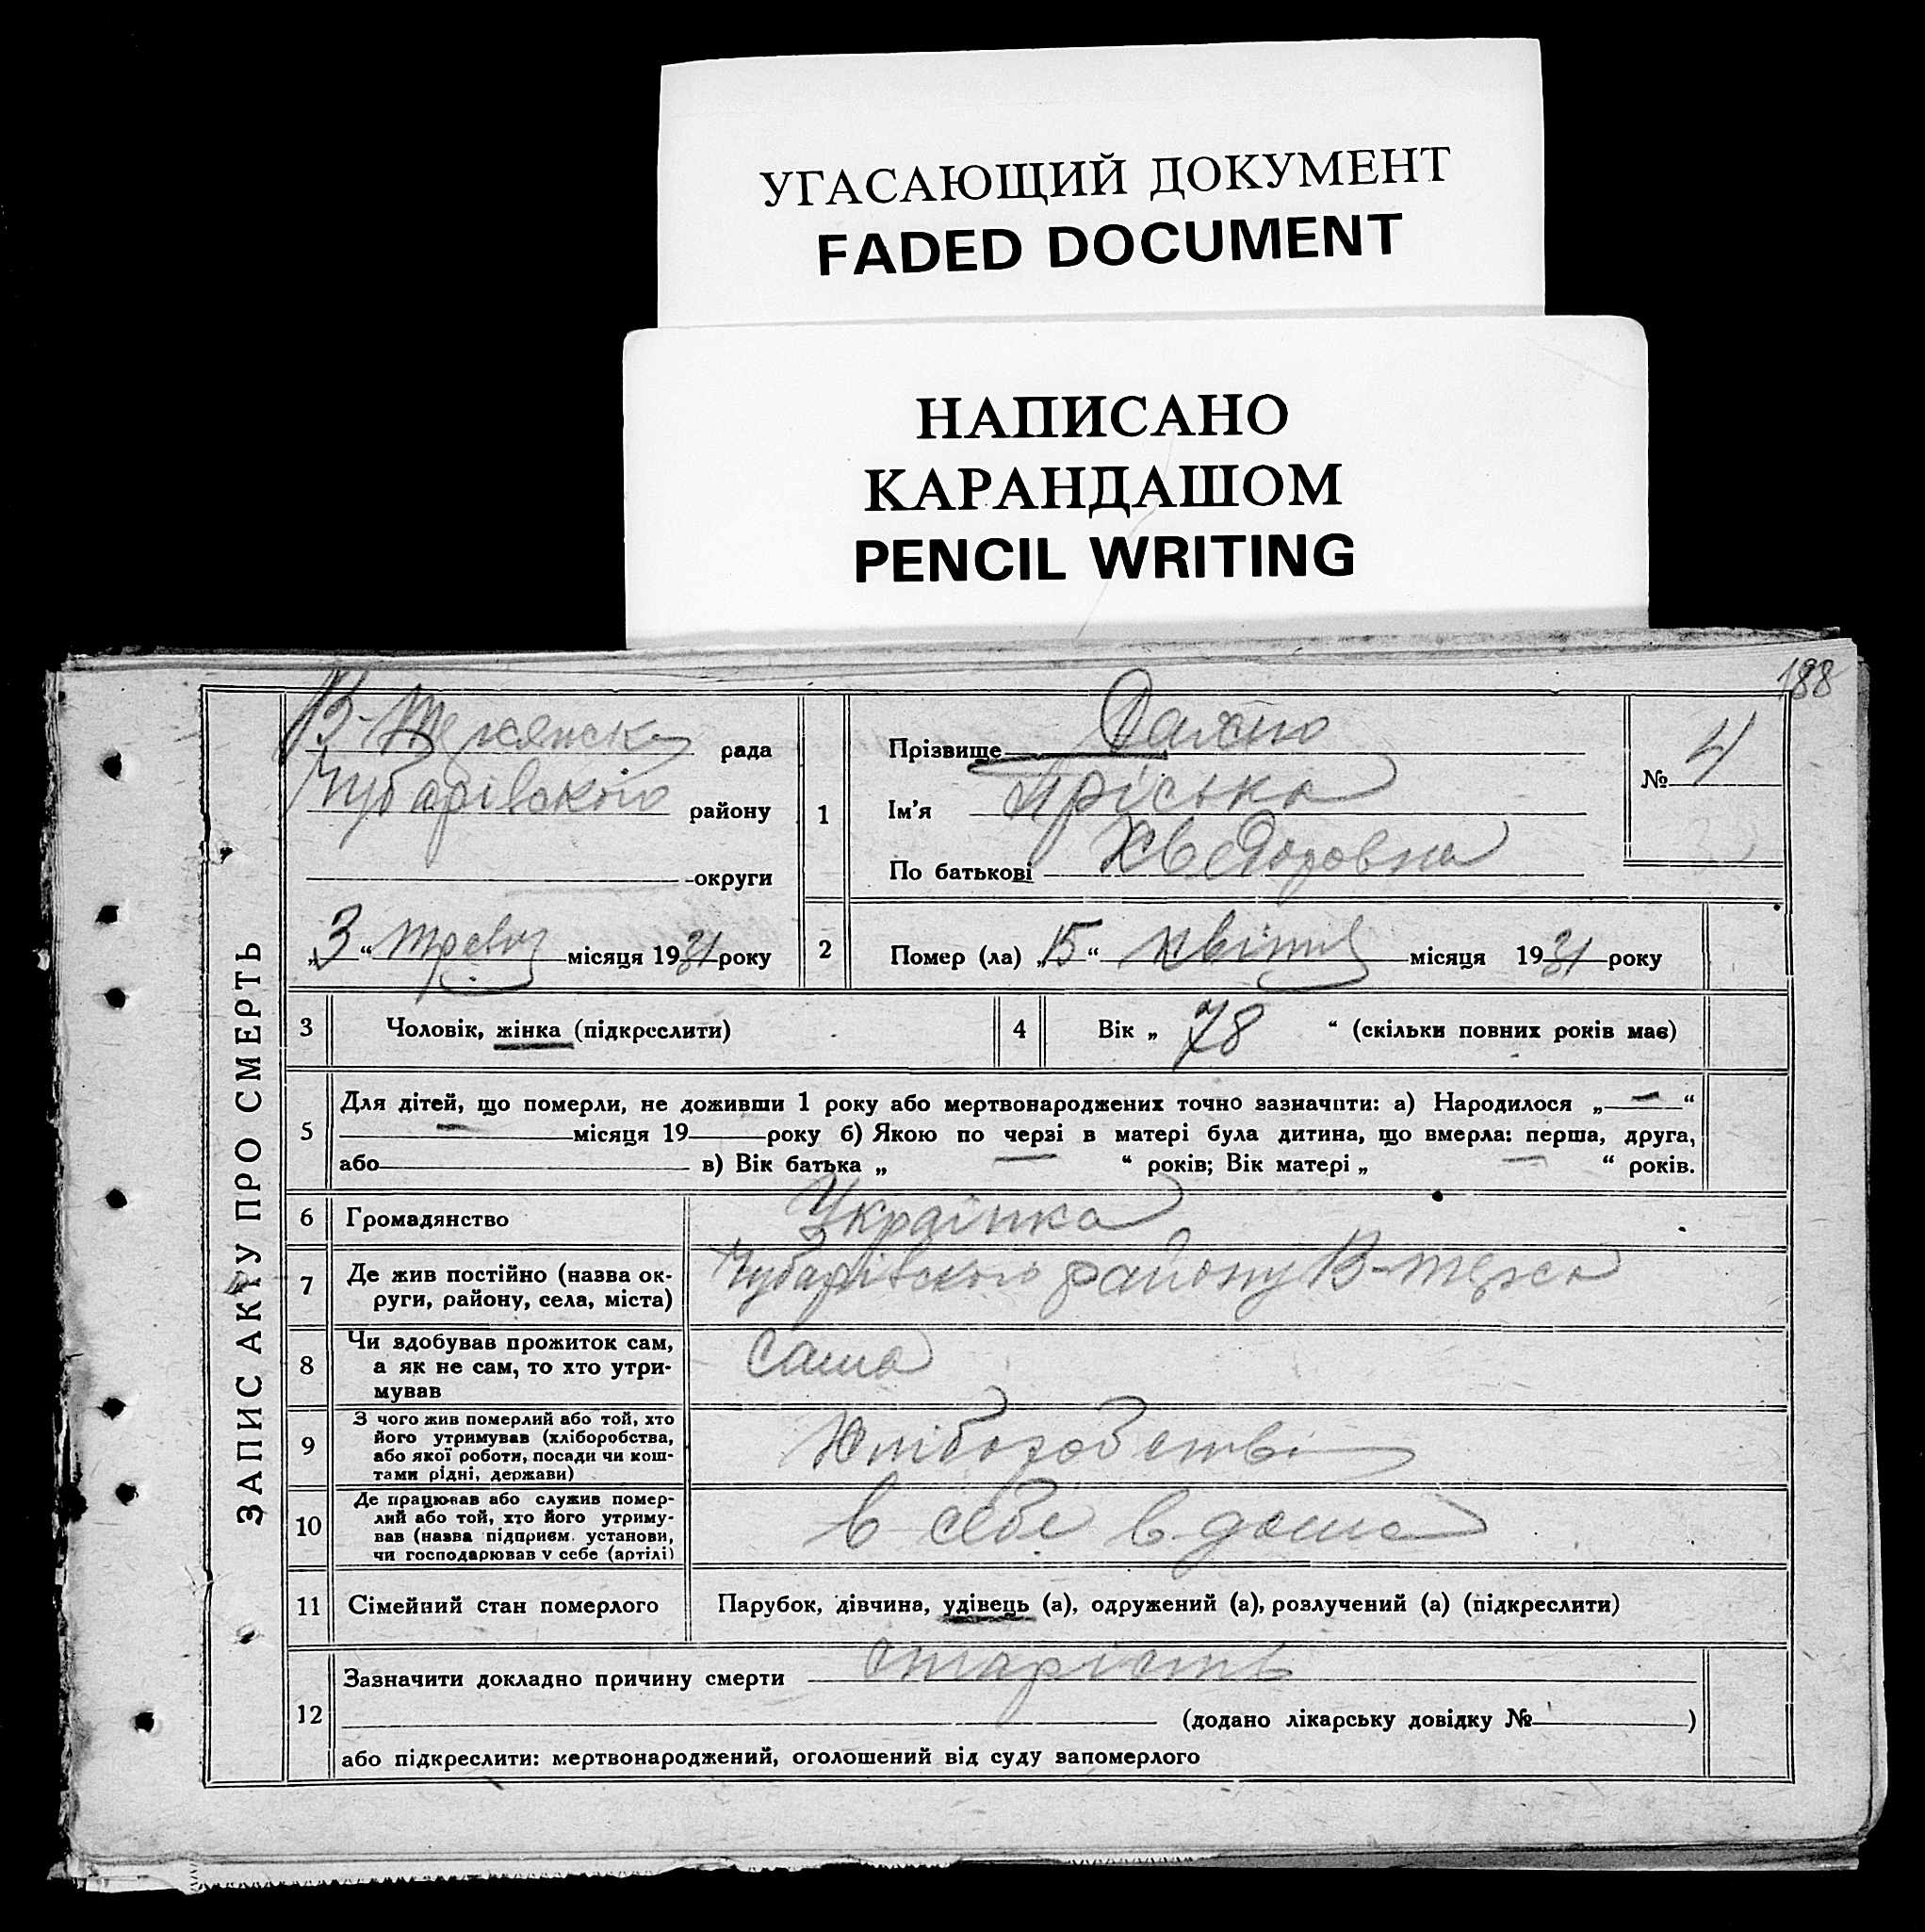 УГАСАЮЩИЙ ДОКУМЕНТ
FADED DOCUMENT
НАПИСАНО
КАРАНДАШОМ
PENCIL WRITING
188
ЗАПИС АКТУ ПРО СМЕРТЬ
рада
Чубарівського району
округи
„3“ травня місяця 1931 року
1
Прізвище
Ім’я Пріська
По батькові Хведоровна
№ 4
2
Помер (ла) „15“ квітня місяця 1931 року
3
Чоловік, жінка (підкреслити)
4
Вік „78“ (скільки повних років має)
5
Для дітей, що померли, не доживши 1 року або мертвонароджених точно зазначити: а) Народилося „—“
— місяця 19 року б) Якою по черзі в матері була дитина, що вмерла: перша, друга,
або в) Вік батька „ — “ років; Вік матері „ — “ років.
6
Громадянство
Українка
7
Де жив постійно (назва ок-
руги, району, села, міста)
Чубарівского району В-Терса
8
Чи здобував прожиток сам,
а як не сам, то хто утри-
мував
сама
9
З чого жив померлий або той, хто
його утримував (хліборобства,
або якої роботи, посади чи кош-
тами рідні, держави)
Хліборобстві
10
Де працював або служив помер-
лий або той, хто його утриму-
вав (назва підприєм. установи,
чи господарював у себе (артілі)
в себе в дома
11
Сімейний стан померлого
Парубок, дівчина, удівець (а), одружений (а), розлучений (а) (підкреслити)
12
Зазначити докладно причину смерти старість
(додано лікарську довідку № )
або підкреслити: мертвонароджений, оголошений від суду запомерлого